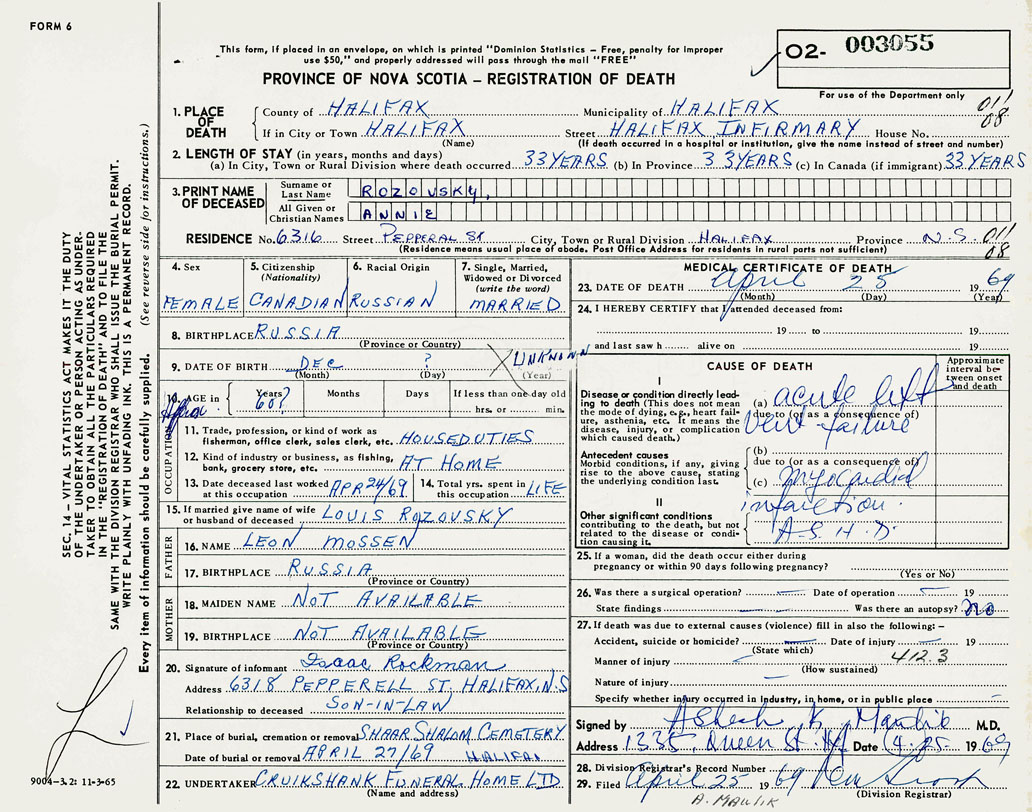 FORM 6
This form, if placed in an envelope, on which is printed "Dominion Statistics – Free, penalty for improper
use $50," and properly addressed will pass through the mail "FREE"
PROVINCE OF NOVA SCOTIA – REGISTRATION OF DEATH
02- 003055
For use of the Department only
011
08
1. PLACE OF DEATH
County of HALIFAX Municipality of HALIFAX
If in City or Town HALIFAX Street HALIFAX INFIRMARY House No.
(Name) (If death occurred in a hospital or institution, give the name instead of street and number)
2. LENGTH OF STAY (in years, months and days)
(a) In City, Town or Rural Division where death occurred 33 YEARS (b) In Province 33 YEARS (c) In Canada (if immigrant) 33 YEARS
3. PRINT NAME OF DECEASED
Surname or Last Name ROZOVSKY,
All Given or Christian Names ANNIE
RESIDENCE No. 6316 Street PEPPERAL ST City, Town or Rural Division HALIFAX Province N.S. 011
08
(Residence means usual place of abode. Post Office Address for residents in rural parts not sufficient)
4. Sex FEMALE
5. Citizenship (Nationality) CANADIAN
6. Racial Origin RUSSIAN
7. Single, Married, Widowed or Divorced (write the word) MARRIED
8. BIRTHPLACE RUSSIA
(Province or Country)
9. DATE OF BIRTH DEC ? UNKNOWN
(Month) (Day) (Year)
10. AGE in Years 60? Months Days If less than one day old
hrs. or min.
OCCUPATION
11. Trade, profession, or kind of work as
fisherman, office clerk, sales clerk, etc. HOUSEDUTIES
12. Kind of industry or business, as fishing,
bank, grocery store, etc. AT HOME
13. Date deceased last worked at this occupation APR 24/69
14. Total yrs. spent in this occupation LIFE
15. If married give name of wife or husband of deceased LOUIS ROZOVSKY
FATHER
16. NAME LEON MOSSEN
17. BIRTHPLACE RUSSIA
(Province or Country)
MOTHER
18. MAIDEN NAME NOT AVAILABLE
19. BIRTHPLACE NOT AVAILABLE
(Province or Country)
20. Signature of informant Isaac Rockman
Address 6318 PEPPERELL ST. HALIFAX, N.S
Relationship to deceased SON-IN-LAW
21. Place of burial, cremation or removal SHAAR SHALOM CEMETERY
Date of burial or removal APRIL 27/69 HALIFAX
22. UNDERTAKER CRUIKSHANK FUNERAL HOME LTD
(Name and address)
MEDICAL CERTIFICATE OF DEATH
23. DATE OF DEATH April 25 1969
(Month) (Day) (Year)
24. I HEREBY CERTIFY that I attended deceased from:
19 to 19
and last saw h alive on 19
CAUSE OF DEATH
Approximate interval between onset and death
I
Disease or condition directly leading to death (This does not mean
the mode of dying, e.g., heart failure, asthenia, etc. It means the
disease, injury, or complication
which caused death.)
(a) acute left
due to (or as a consequence of)
Vent failure
Antecedent causes
Morbid conditions, if any, giving
rise to the above cause, stating
the underlying condition last.
(b)
due to (or as a consequence of)
(c) myocardial
infarction
II
Other significant conditions
contributing to the death, but not
related to the disease or condition causing it.
A.S.H.D.
25. If a woman, did the death occur either during
pregnancy or within 90 days following pregnancy?
(Yes or No)
26. Was there a surgical operation? – Date of operation – 19
State findings – Was there an autopsy? no
27. If death was due to external causes (violence) fill in also the following: –
Accident, suicide or homicide? – Date of injury – 19
(State which)
412.3
Manner of injury
(How sustained)
Nature of injury –
Specify whether injury occurred in Industry, in home, or in public place –
Signed by Ashesh K. Maulik M.D.
Address 1335, Queen St. Hfx Date 4.25 1969
28. Division Registrar's Record Number
29. Filed April 25 1969
(Division Registrar)
A. MAULIK
SEC. 14 – VITAL STATISTICS ACT MAKES IT THE DUTY
OF THE UNDERTAKER OR PERSON ACTING AS UNDER-
TAKER TO OBTAIN ALL THE PARTICULARS REQUIRED
IN THE "REGISTRATION OF DEATH" AND TO FILE THE
SAME WITH THE DIVISION REGISTRAR WHO SHALL ISSUE THE BURIAL PERMIT.
WRITE PLAINLY WITH UNFADING INK. THIS IS A PERMANENT RECORD.
Every item of information should be carefully supplied. (See reverse side for instructions.)
9004-3.2: 11-3-65